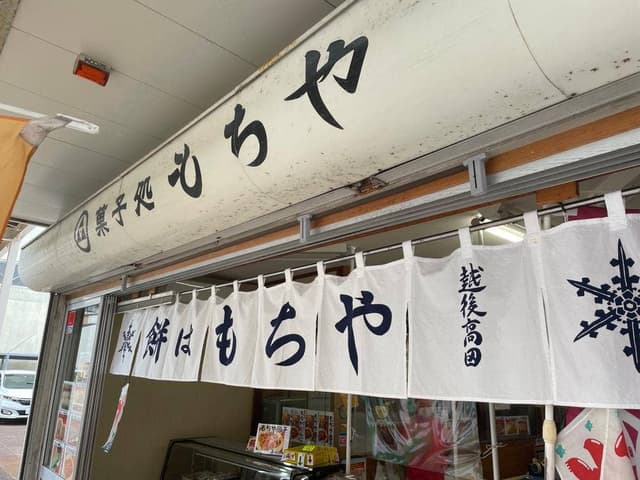 菓子処 もちや
餅は もちや
越後高田
もちや